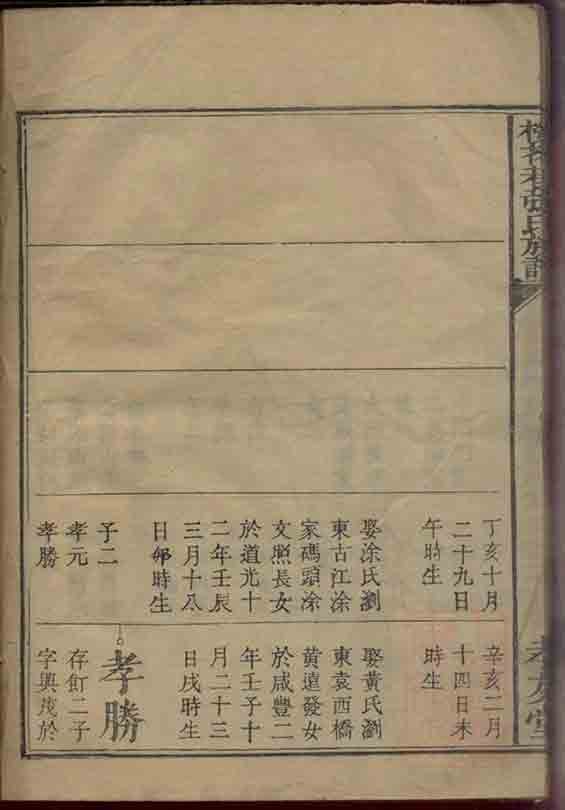 張氏族譜
丁亥十月
二十九日
午時生
娶涂氏瀏
東古江涂
家碼頭涂
文照長女
於道光十
二年壬辰
三月十八
日卯時生
子二
孝元
孝勝
辛亥二月
十四日未
時生
娶黃氏瀏
東袁西橋
黃遠發女
於咸豐二
年壬子十
月二十三
日戌時生
孝勝
存訂二子
字興茂於
孝友堂